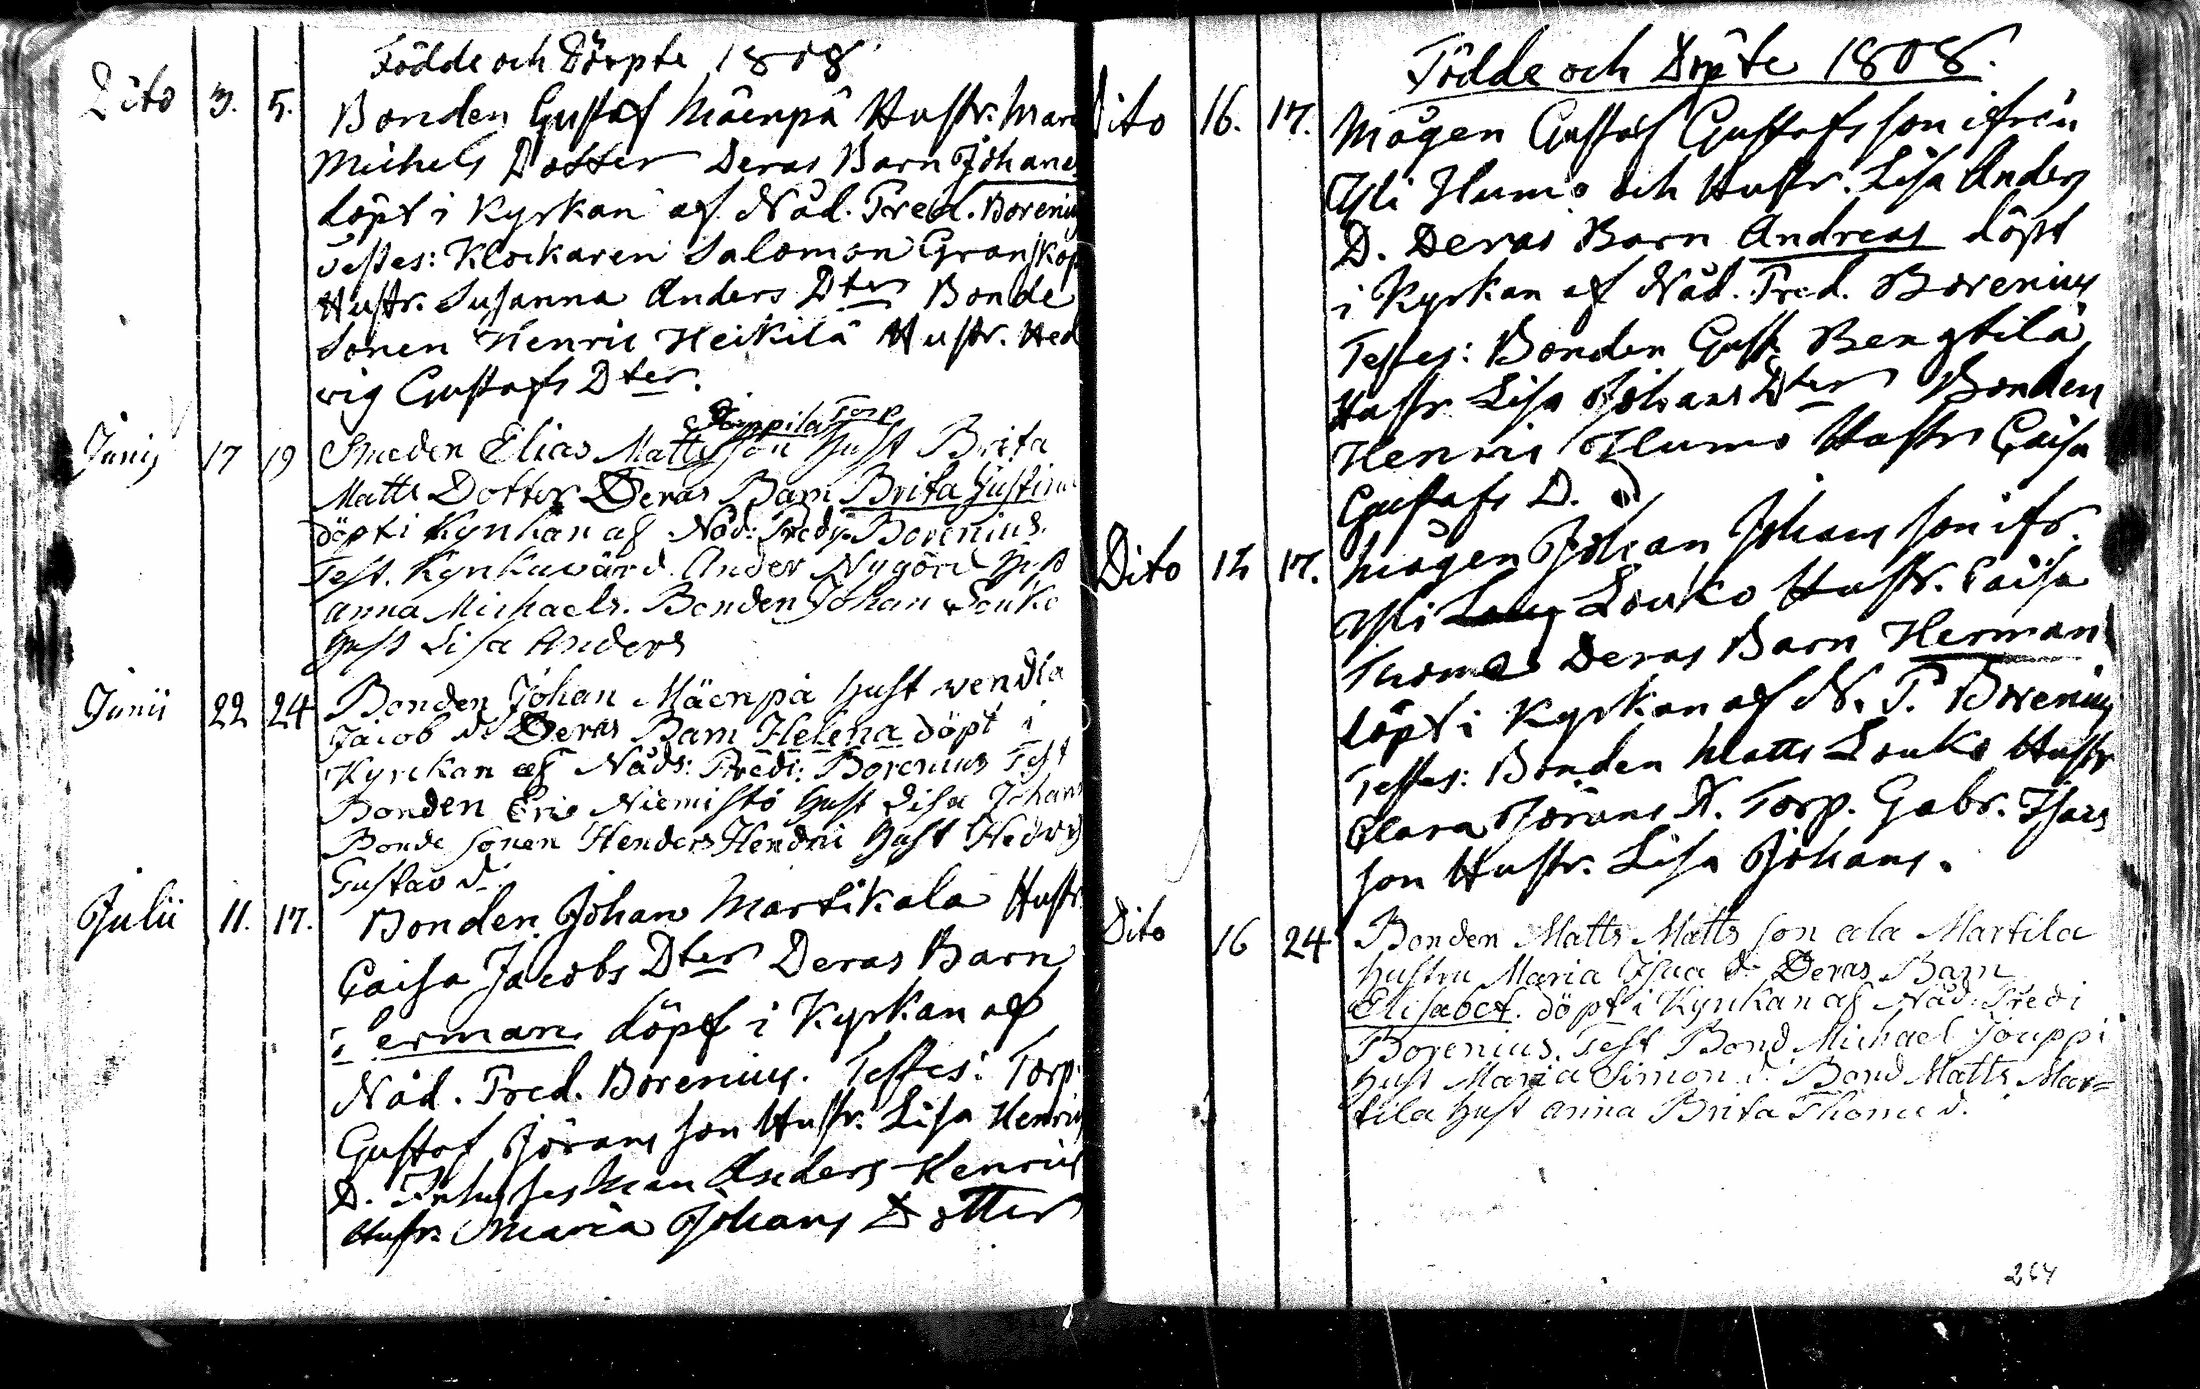 Födde och Döpte 1808
Dito 3. 5. Bonden Gustaf Mäenpä Hustr. Mari
Michels Dotter Deras Barn Johanes
döpt i Kyrkan af Nåd. Pred. Borenius
Testes: Klockaren Salomon Granskog
Hustr. Susanna Anders Dter Bonde
Sonen Henric Heikilä Hustr. Hed
vig Gustafs Dter.
Torp
Junij 17 19 Smeden Elias Matts son Hust Brita
Matts Dotter Deras Barn Brita Justina
döpt i Kyrkan af Nåd: Predi: Borenius.
Test. Kyrkuvärd Anders Nygård Hust
Anna Michaels. Bonden Johan Louko
Hust Lisa Anders
Junii 22 24 Bonden Johan Mäenpä Hust vendla
Jacob d. Deras Barn Helena döpt i
Kyrckan af Nåds: Predi: Borenius Test
Bonden Eric Niemistö Hust Lisa Johans
Bonde sonen Henders Hendri Hust Hedvig
Gustav d.
Julii 11. 17. Bonden Johan Martikala Hustr.
Caisa Jacobs Dter Deras Barn
Herman döpt i Kyrkan af
Nåd. Pred. Borenius. Testes: Torp.
Gustaf Jörans son Hustr. Lisa Henrics
D. Anders Henrics
Hustr. Maria Johans Dotter
Födde och Döpte 1808.
Dito 16. 17. Mågen Gustaf Gustafs son ifrån
Yli Humo och Hustr. Lisa Anders
D. Deras Barn Andreas döpt
i Kyrkan af Nåd. Pred. Borenius
Testes: Bonden Gust. Bengtilä
Hustr Lisa Johans Dter Bonden
Henric Humo Hustr Caisa
Gustafs D.
Dito 12 17. Mågen Johan Johans son ifr.
Yli Louko Hustr. Caisa
Thomas Deras Barn Herman
döpt i Kyrkan af N. P. Borenius
Testes: Bonden Matts Louko Hustr
Clara Jörans D. Torp. Gabr. Isacs
son Hustr. Lisa Johans.
Dito 16 24 Bonden Matts Matts son ala Martila
Hustru Maria Isac d. Deras Barn
Elisabet. döpt i Kyrkan af Nåd: Predi
Borenius. Test Bond Michael Jouppi
Hust Maria Simon d. Bond Matts Mar=
tila Hust Anna Brita Thome d.
264